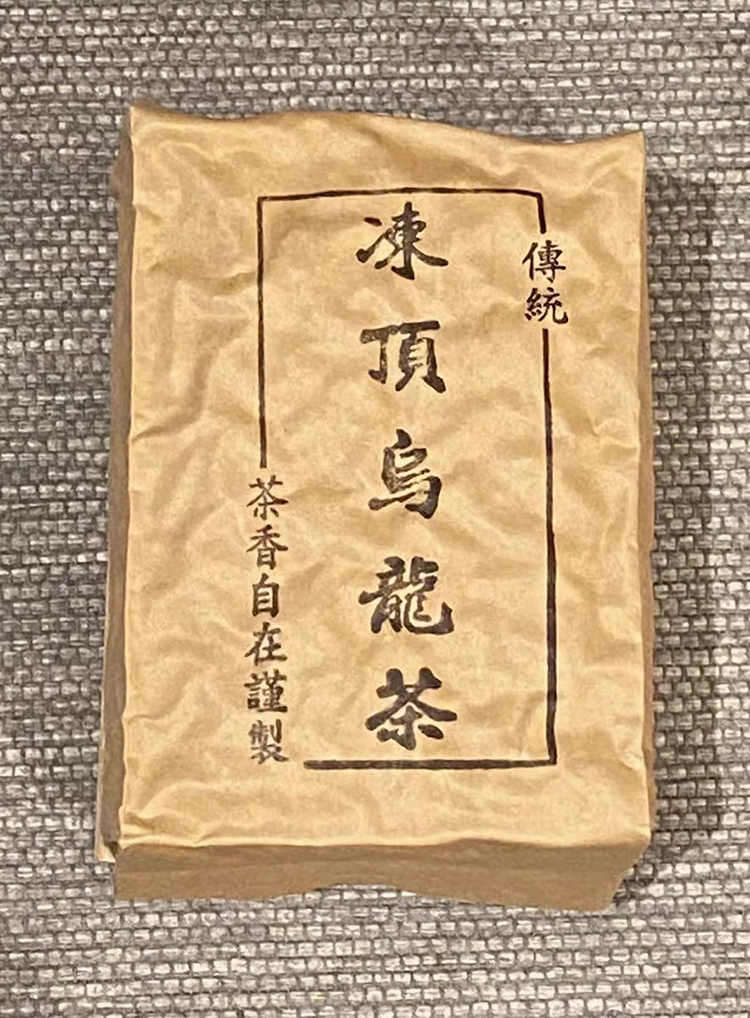 傳統
凍頂烏龍茶
茶香自在謹製